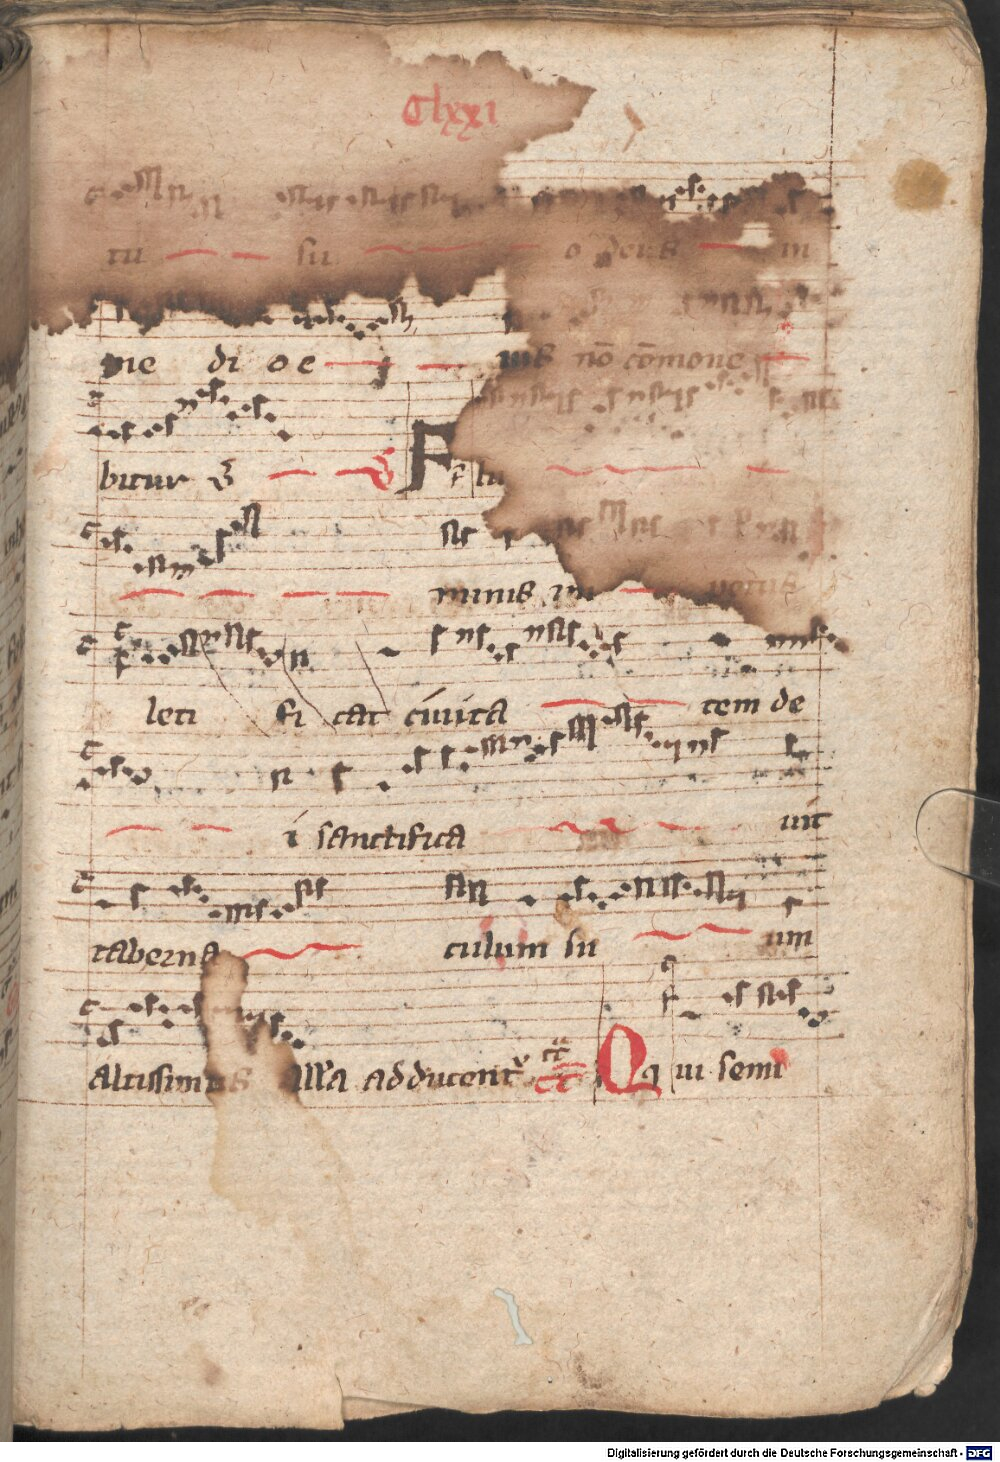 Clxxi
tu su o deus in
me di o e ius nō cōmoue
bitur ℣ ℣ F F lu
minis im petus
leti fi cat ciuita tem de
i sanctifica uit
taberna culum su um
altissimus all'a adducent² Q qui semi
Digitalisierung gefördert durch die Deutsche Forschungsgemeinschaft - DFG